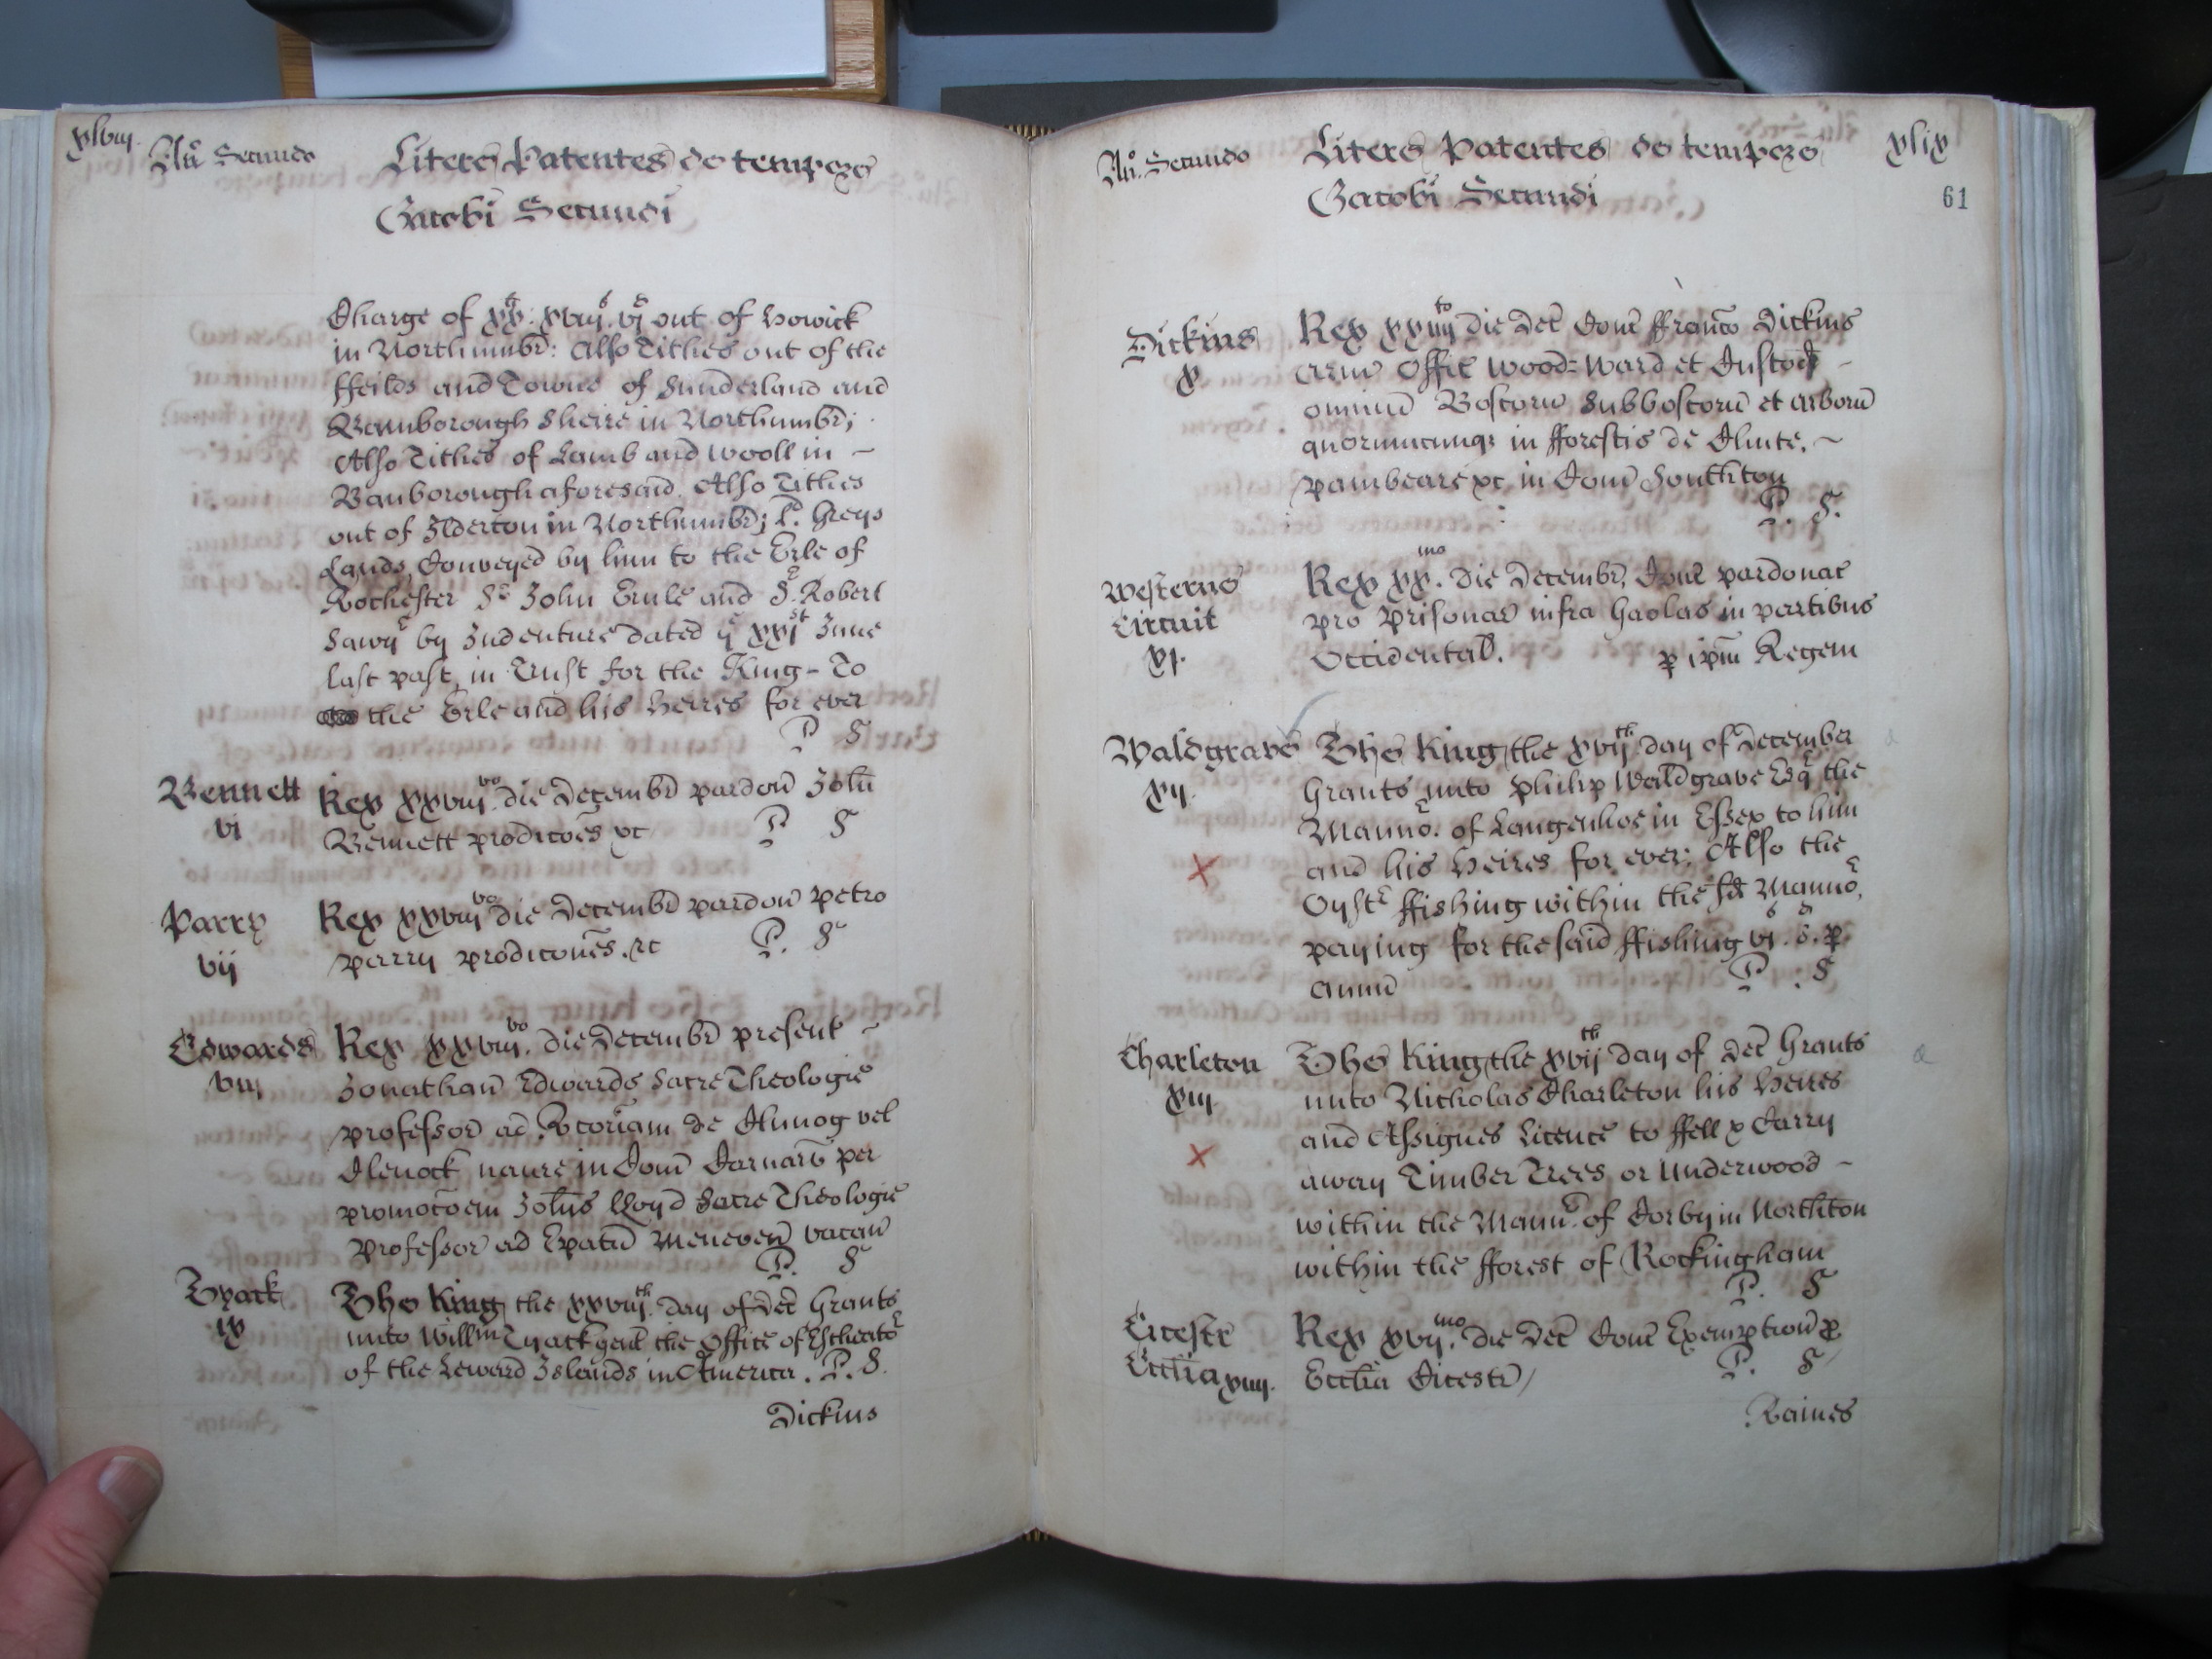 xlviij.
An̄o Secundo
Litere Patentes de tempore
Jacobi Secundi
Charge of xx£: xviijs. vjd out of Howick
in Northumb̄r: Also Tithes out of the
ffeilds and Towne of Sunderland and
Bamborough Sheire in Northumb̄r;
Also Tithes of Lamb and Wooll in ~
Bamborough aforesaid. Also Tithes
out of Ilderton in Northumb̄r; Ld. Greys
Lands, Conveyed by him to the Erle of
Rochester Sr John Ernle and Sr. Robert
Sawyr by Indenture dated ye xxjst June
last past, in Trust for the King - To
the Erle and his Heires for ever
P S
Bennett
vi
Rex xxviijvo. die Decembr̄ pardon̄ Joh̄i
Bennett prodico͞es, &c P S
Parry
vij
Rex xxviijvo die Decembr̄ pardon̄ Petro
Parry prodico͞nes. &c P. S
Edwards
viij
Rex xxviijvo. die Decembr̄ present ~
Jonathan̄ Edwards Sacre Theologie
professor̄ ad Rcoriam de Clunog vel
Clenock vaure in Com̄ Carnarv̄ per
promoco͞em Joh̄is Lloyd Sacre Theologie
Professor̄ ad Ep̄atū Meneven̄ vacan̄
P. S
Tyack
ix
The King the xxviijth. day of Dec̄ Grants
unto Willm̄ Tyack gent̄ the Office of Escheator
of the Leward Islands in America. P. S.
Dickins
An̄o. Secundo
Litere Patentes de tempore
Jacobi Secundi
xlix
61
Dickins
x
Rex xxiiijto die Dec̄ Conc̄ ffranc̄o Dickins
Arm̄ Offic̄ Wood=Ward et Custod̄ ~
omniū Boscorū Subboscorū et arborū
quorumcunqz in fforestis de Chute, ~
Pambeare &c in Com̄ Southton
P. S.
Westerne
Circuit
xj.
Rex xxmo. die Decembr̄, Conc̄ pardonac̄
pro Prisonar̄ infra Gaolas in partibus
Occidental̄. p ip̄m Regem
Waldgrave
xij.
The King the xvijth day of December
Grants unto Philip Waldgrave Esqr the
Mannor. of Langenhoe in Essex to him
and his Heires for ever; Also the
Oystr ffishing within the sd Mannor,
paying for the said ffishing vjs. 8d. p
annū P. S
Charleton
xiij.
The King the xvijth day of Dec̄ Grants
unto Nicholas Charleton his Heires
and Assignes Licence to ffell & Carry
away Timber Trees or Underwood ~
within the Mannr. of Corby in Northton
within the fforest of Rockingham
P. S
Cicestr̄
Eccl̄ia xiiij.
Rex xvijmo. die Dec̄ Conc̄ Exemption̄ p
Eccl̄ia Cicestr̄ P. S
Raines